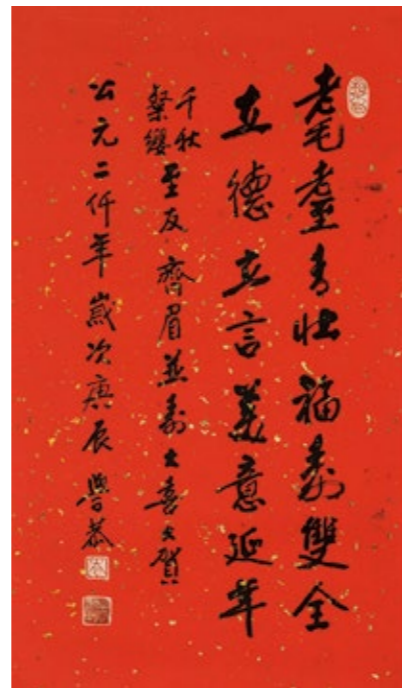 耄耋青壯福壽雙全
立德立言美意延年
千秋
粲纓至友齊眉並壽大喜大賀
公元二仟年歲次庚辰學恭